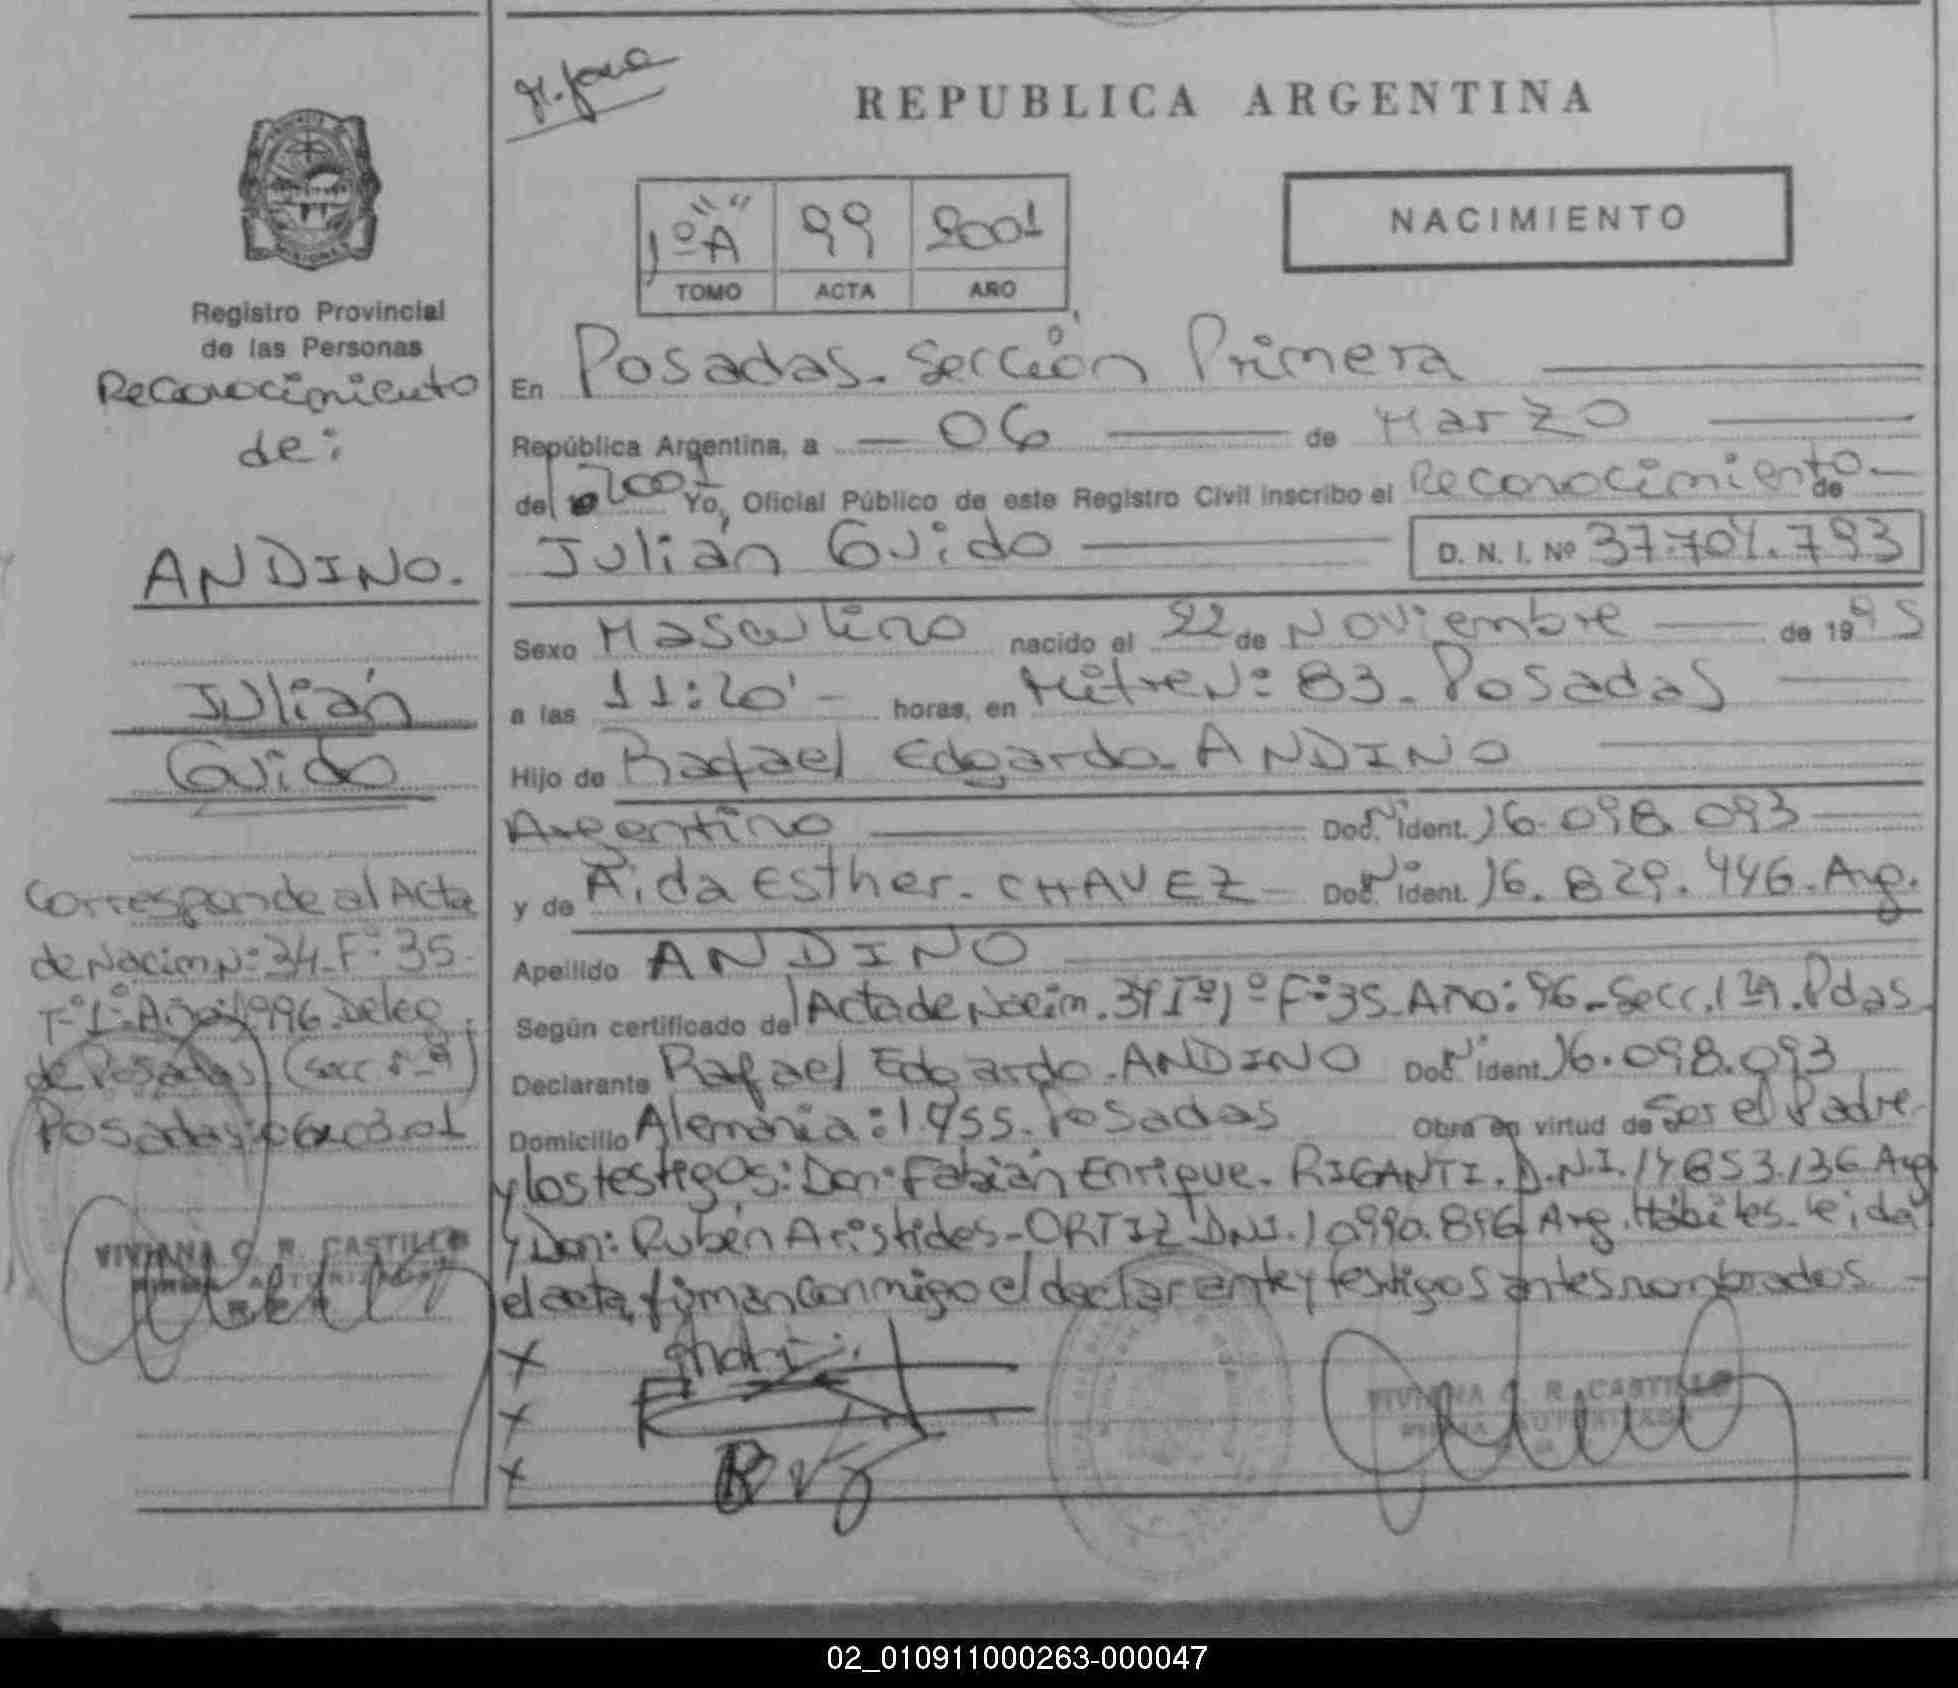 M. Jara
REPUBLICA ARGENTINA
1º "A" 99 2001
TOMO ACTA AÑO
NACIMIENTO
Registro Provincial
de las Personas
Reconocimiento
de:
ANDINO.
Julián
Guido
Corresponde al Acta
de Nacim Nº: 34. Fº 35.
Tº 1º Año: 1996. Deleg.
de Posadas (Secc 1ª)
Posadas: 06.03.01
VIVIANA C. R. CASTILLO
FIRMA AUTORIZADA
En Posadas. Sección Primera
República Argentina, a 06 de Marzo
del 2001 Yo, Oficial Público de este Registro Civil inscribo el Reconocimiento de
Julián Guido D. N. I. Nº 37.704.793
Sexo Masculino nacido el 22 de Noviembre de 1995
a las 11:20' horas, en Mitre Nº: 83. Posadas
Hijo de Rafael Edgardo ANDINO
Argentino Doc. Nº Ident. 16.098.093
y de Aida Esther. CHAVEZ Doc. Nº Ident. 16.829.446. Arg.
Apellido ANDINO
Según certificado de Acta de Nacim. 34 Tº 1º Fº 35. Año: 96. Secc. 1ra. Pdas.
Declarante Rafael Edgardo. ANDINO Doc. Nº Ident. 16.098.093
Domicilio Alemania: 1.955. Posadas Obra en virtud de Ser el Padre.
y los testigos: Don: Fabián Enrique. RIGANTI. D.N.I. 17.853.136 Arg
y Don: Rubén Aristides-ORTIZ DNI. 10990.896 Arg. Hábiles. leida
el acta, firman conmigo el declarante y testigos antes nombrados
X
X
X
VIVIANA C. R. CASTILLO
FIRMA AUTORIZADA
02_010911000263-000047